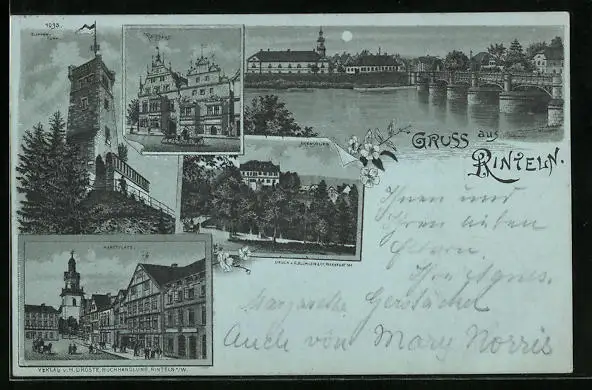 1093.
KLIPPEN
TURM
RATHAUS
GRUSS aus
RINTELN.
DRUCK v.
MARKTPLATZ.
VERLAG v. H. DROSTE, BUCHHANDLUNG, RINTELN a/W.
Ihnen und
Ihren lieben
Eltern.
Ihre Agnes.
Margarethe Gerstäcker
Auch von Mary Norris